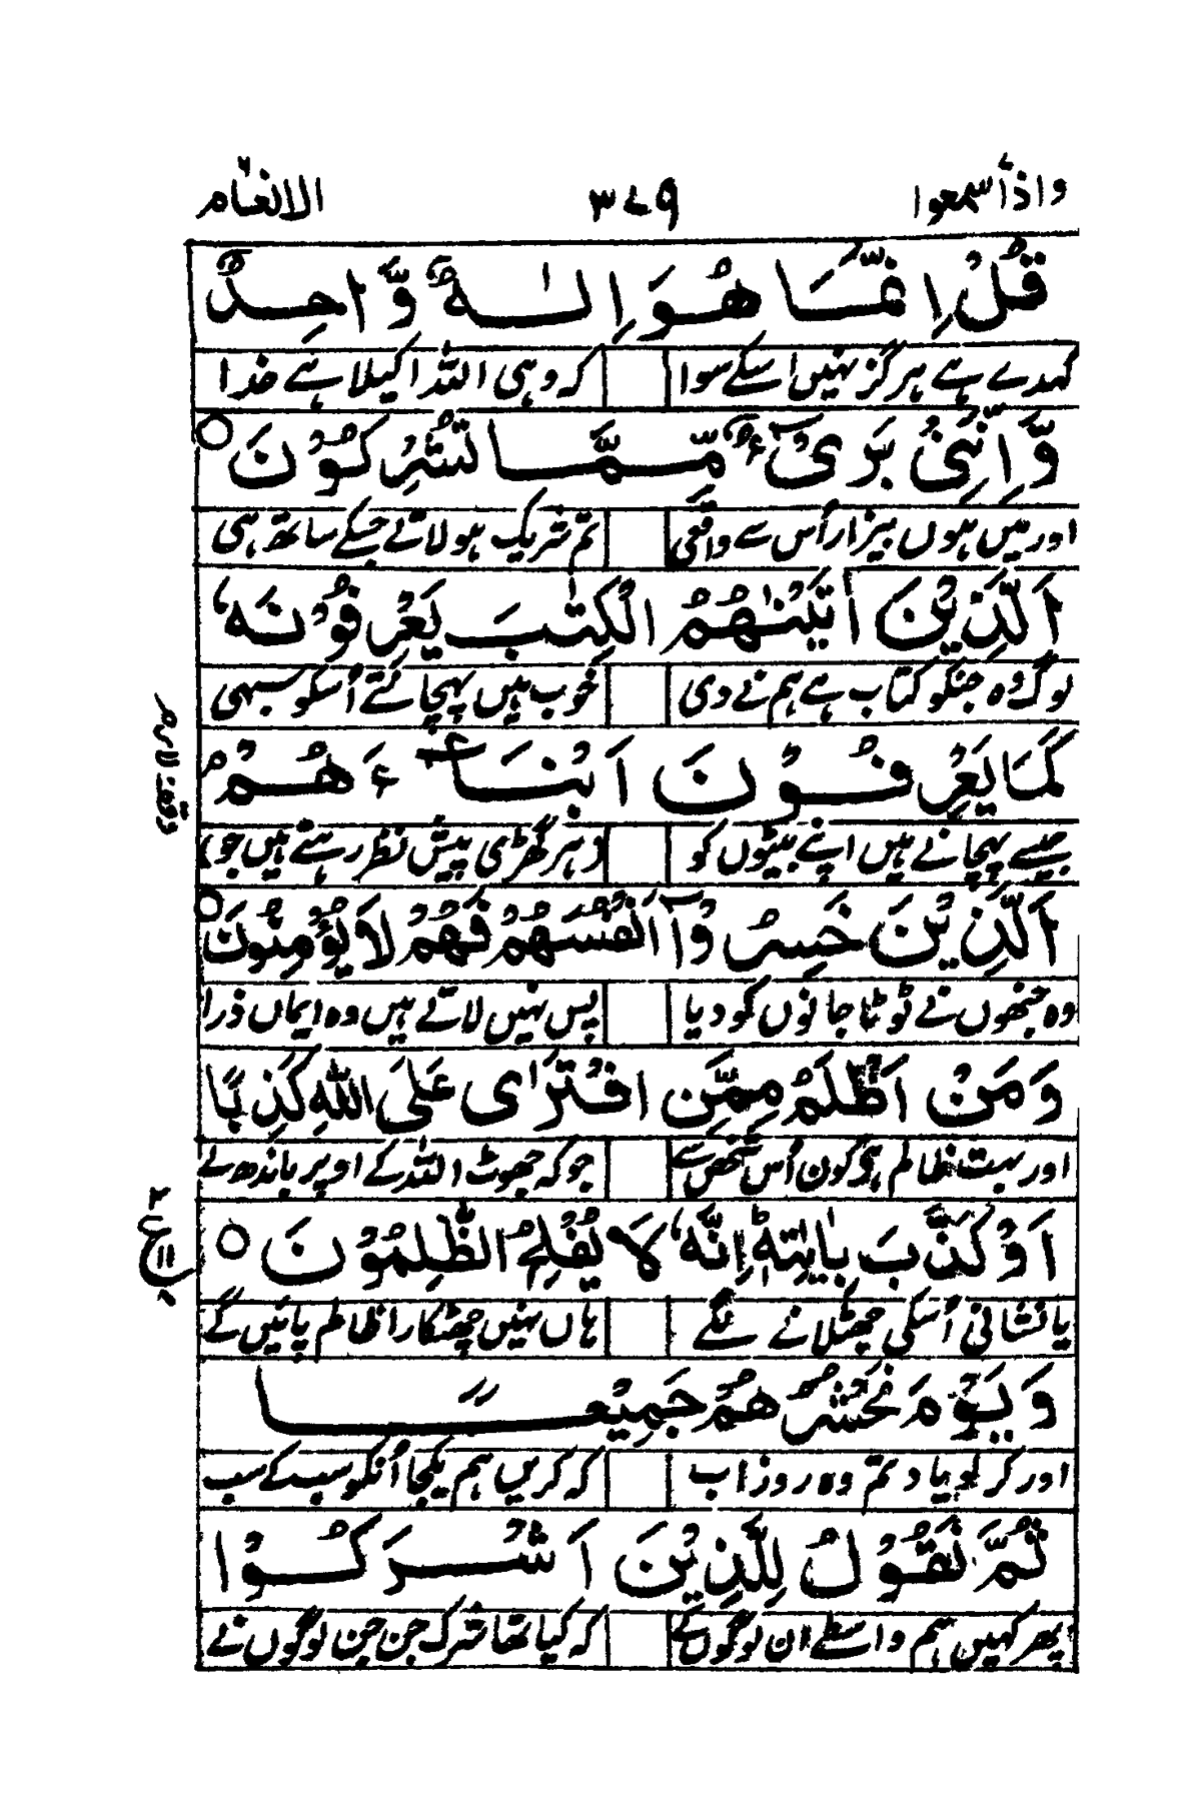 واذاسمعوا ۳۷۹ الانعام
قُلْ اِنَّمَا هُوَ اِلٰهٌ وَّاحِدٌ
کہدے ہے ہرگز نہیں اسکے سوا کہ وہی اللہ اکیلا ہے خدا
وَّاِنَّنِیْ بَرِیْٓءٌ مِّمَّا تُشْرِكُوْنَ ○
اور میں ہوں بیزار اُس سے واقعی تم شریک ہو لاتے جسکے ساتھ ہی
اَلَّذِیْنَ اٰتَیْنٰهُمُ الْكِتٰبَ یَعْرِفُوْنَهٗ
لوگ وہ جنکو کتاب ہے ہم نے دی خوب ہیں پہچانتے اُسکو سبھی
كَمَا یَعْرِفُوْنَ اَبْنَآءَهُمْ
جیسے پہچانے ہیں اپنے بیٹوں کو وہر گھڑی پیش نظر رہتے ہیں جو
وقف لازم
اَلَّذِیْنَ خَسِرُوْٓا اَنْفُسَهُمْ فَهُمْ لَا یُؤْمِنُوْنَ ○
وہ جنھوں نے ٹوٹا جانوں کو دیا پس نہیں لاتے ہیں وہ ایماں ذرا
وَمَنْ اَظْلَمُ مِمَّنِ افْتَرٰی عَلَی اللّٰهِ كَذِبًا
اور بہت ظالم ہو کون اُس شخص سے جو کہ جھوٹ اللہ کے اوپر باندھ لے
اَوْ كَذَّبَ بِاٰیٰتِهٖ اِنَّهٗ لَا یُفْلِحُ الظّٰلِمُوْنَ ○
یا نشانی اُسکی جھٹلانے لگے ہاں نہیں چھٹکارا ظالم پائیں گے
وَیَوْمَ نَحْشُرُهُمْ جَمِیْعًا
اور کر لو یاد تم وہ روز اب کہ کریں ہم یکجا اُنکو سب کے سب
ثُمَّ نَقُوْلُ لِلَّذِیْنَ اَشْرَكُوْا
پھر کہیں ہم واسطے ان لوگوں کے کہ کیا تھا شرک جن جن لوگوں نے